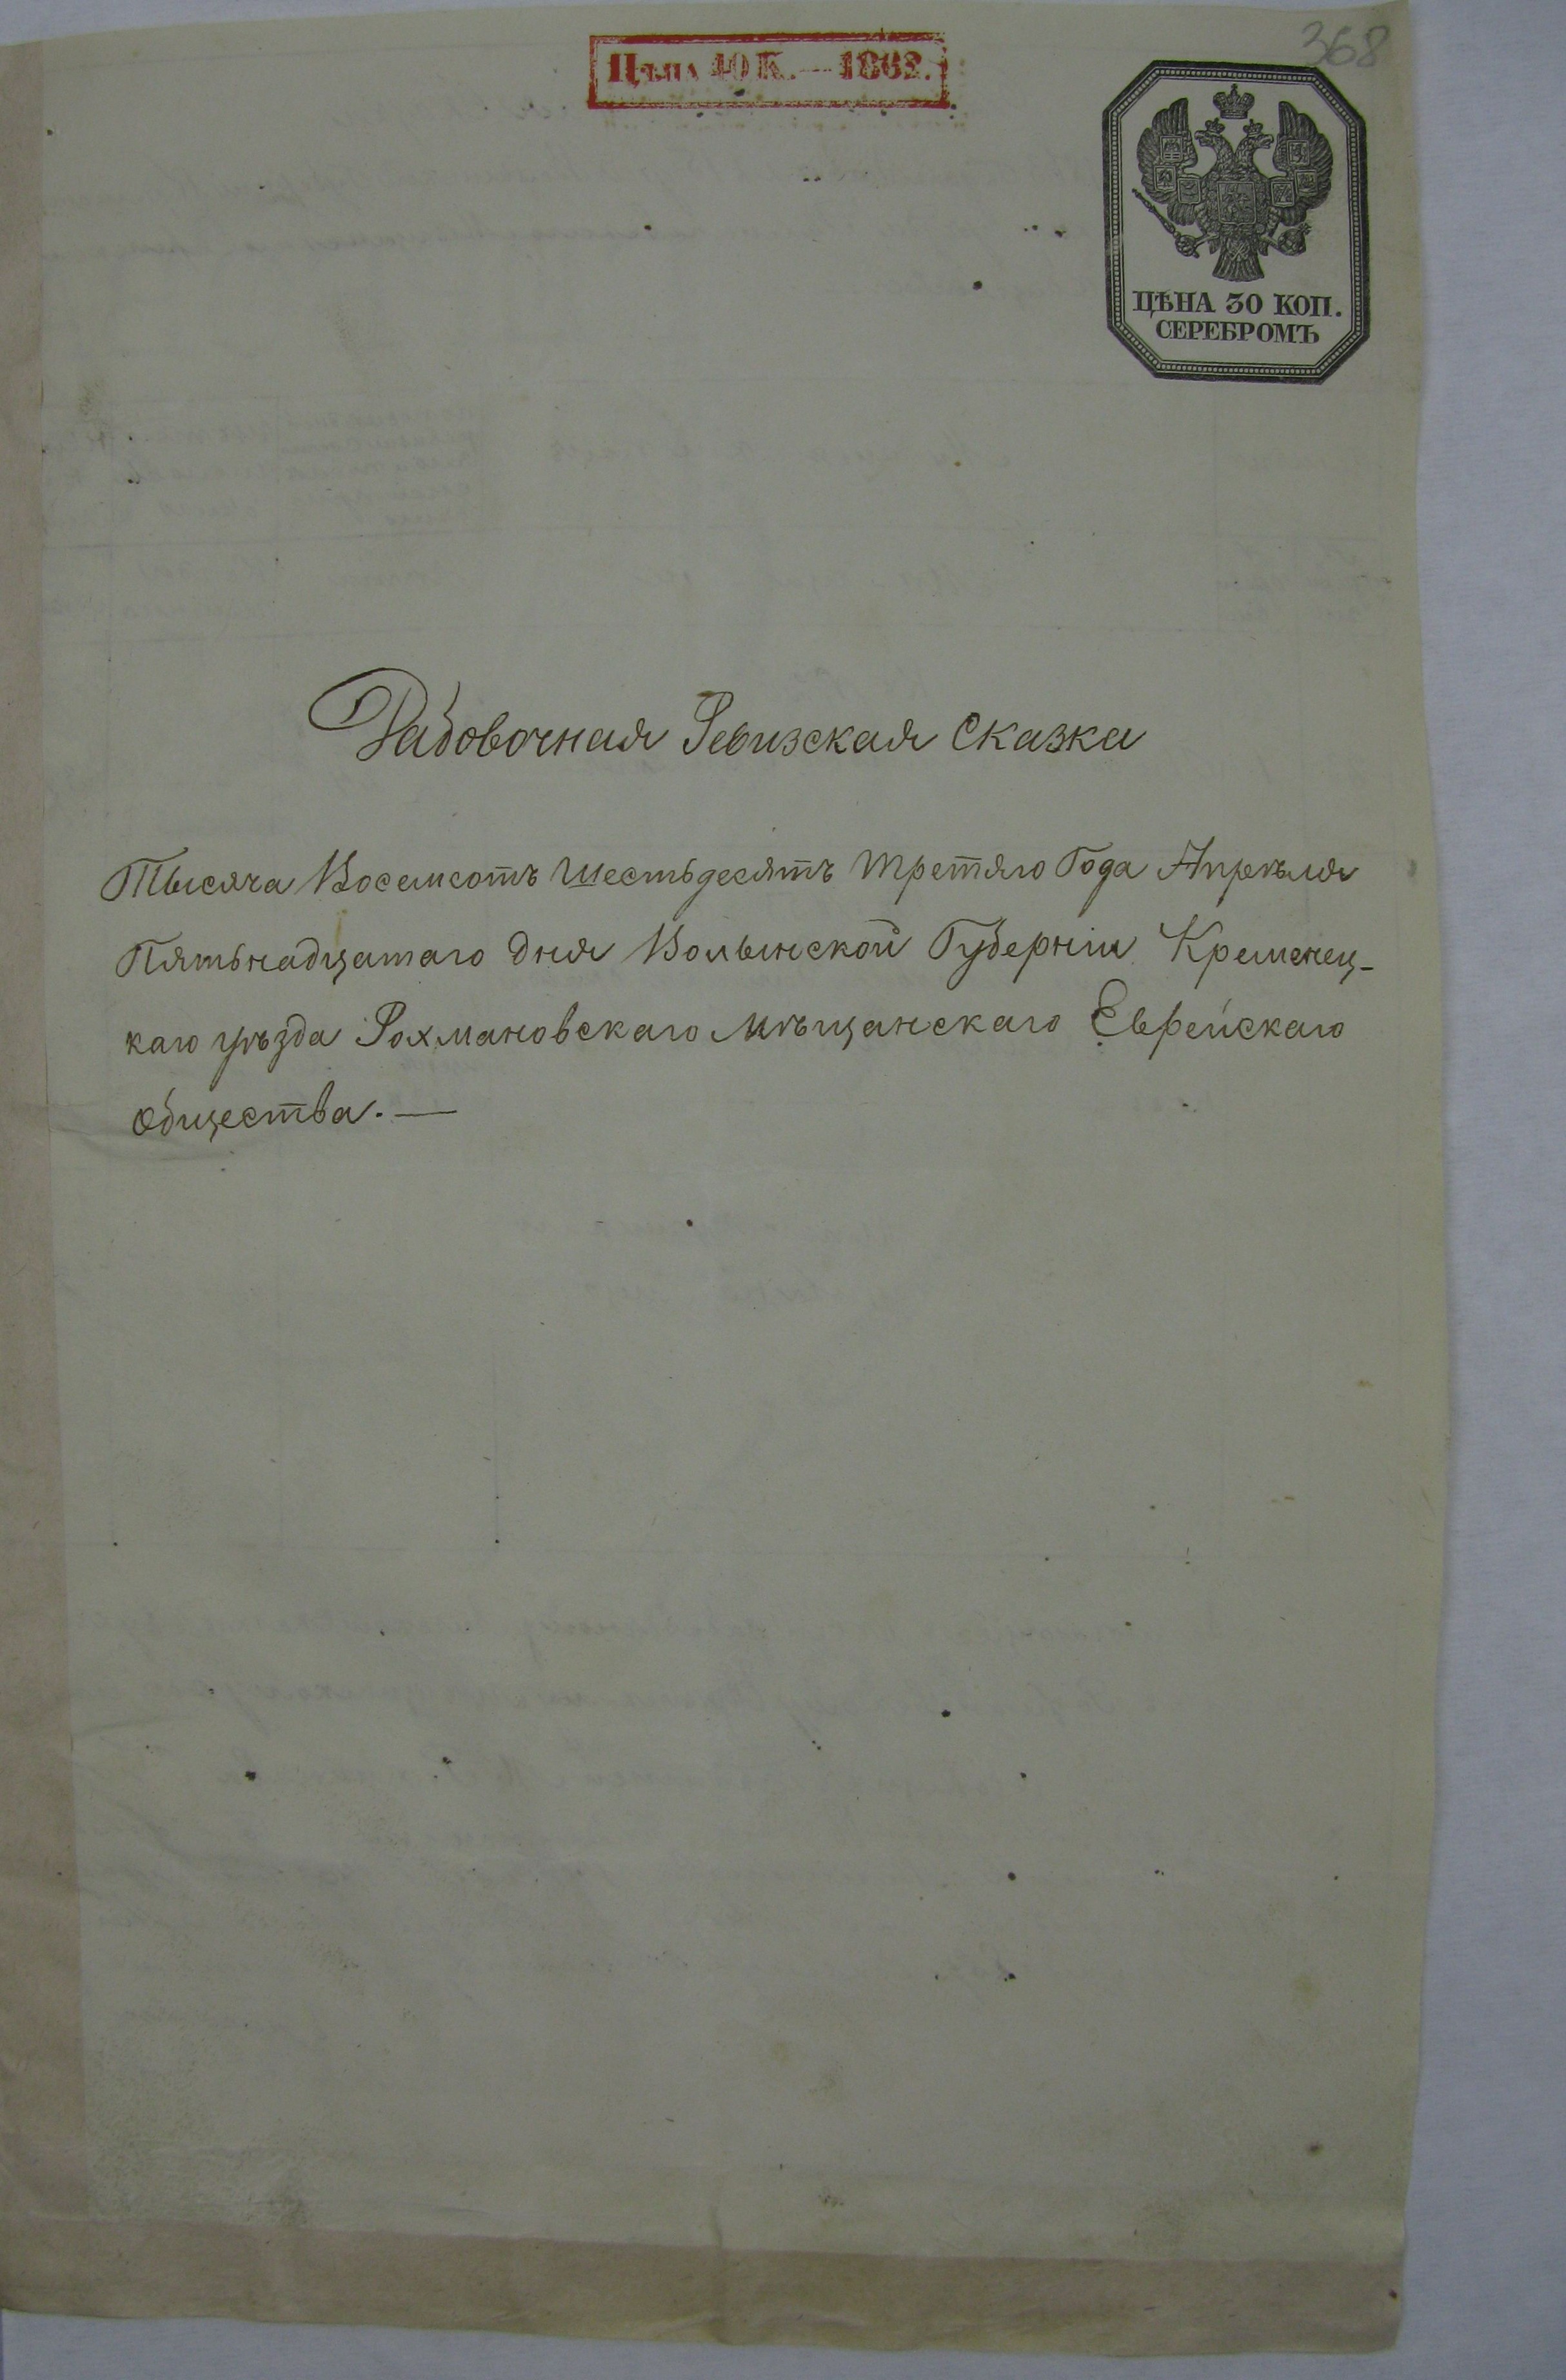 368
Цѣна 10 К. — 1862.
ЦѢНА 30 КОП.
СЕРЕБРОМЪ
Ревизская Сказка
Тысяча Восемсотъ Шестьдесятъ третяго Года Апрѣля
Пятьнадцатаго дня Волынской Губерніи Кременец-
каго уѣзда Рохмановскаго Мѣщанскаго Еврейскаго
общества. —